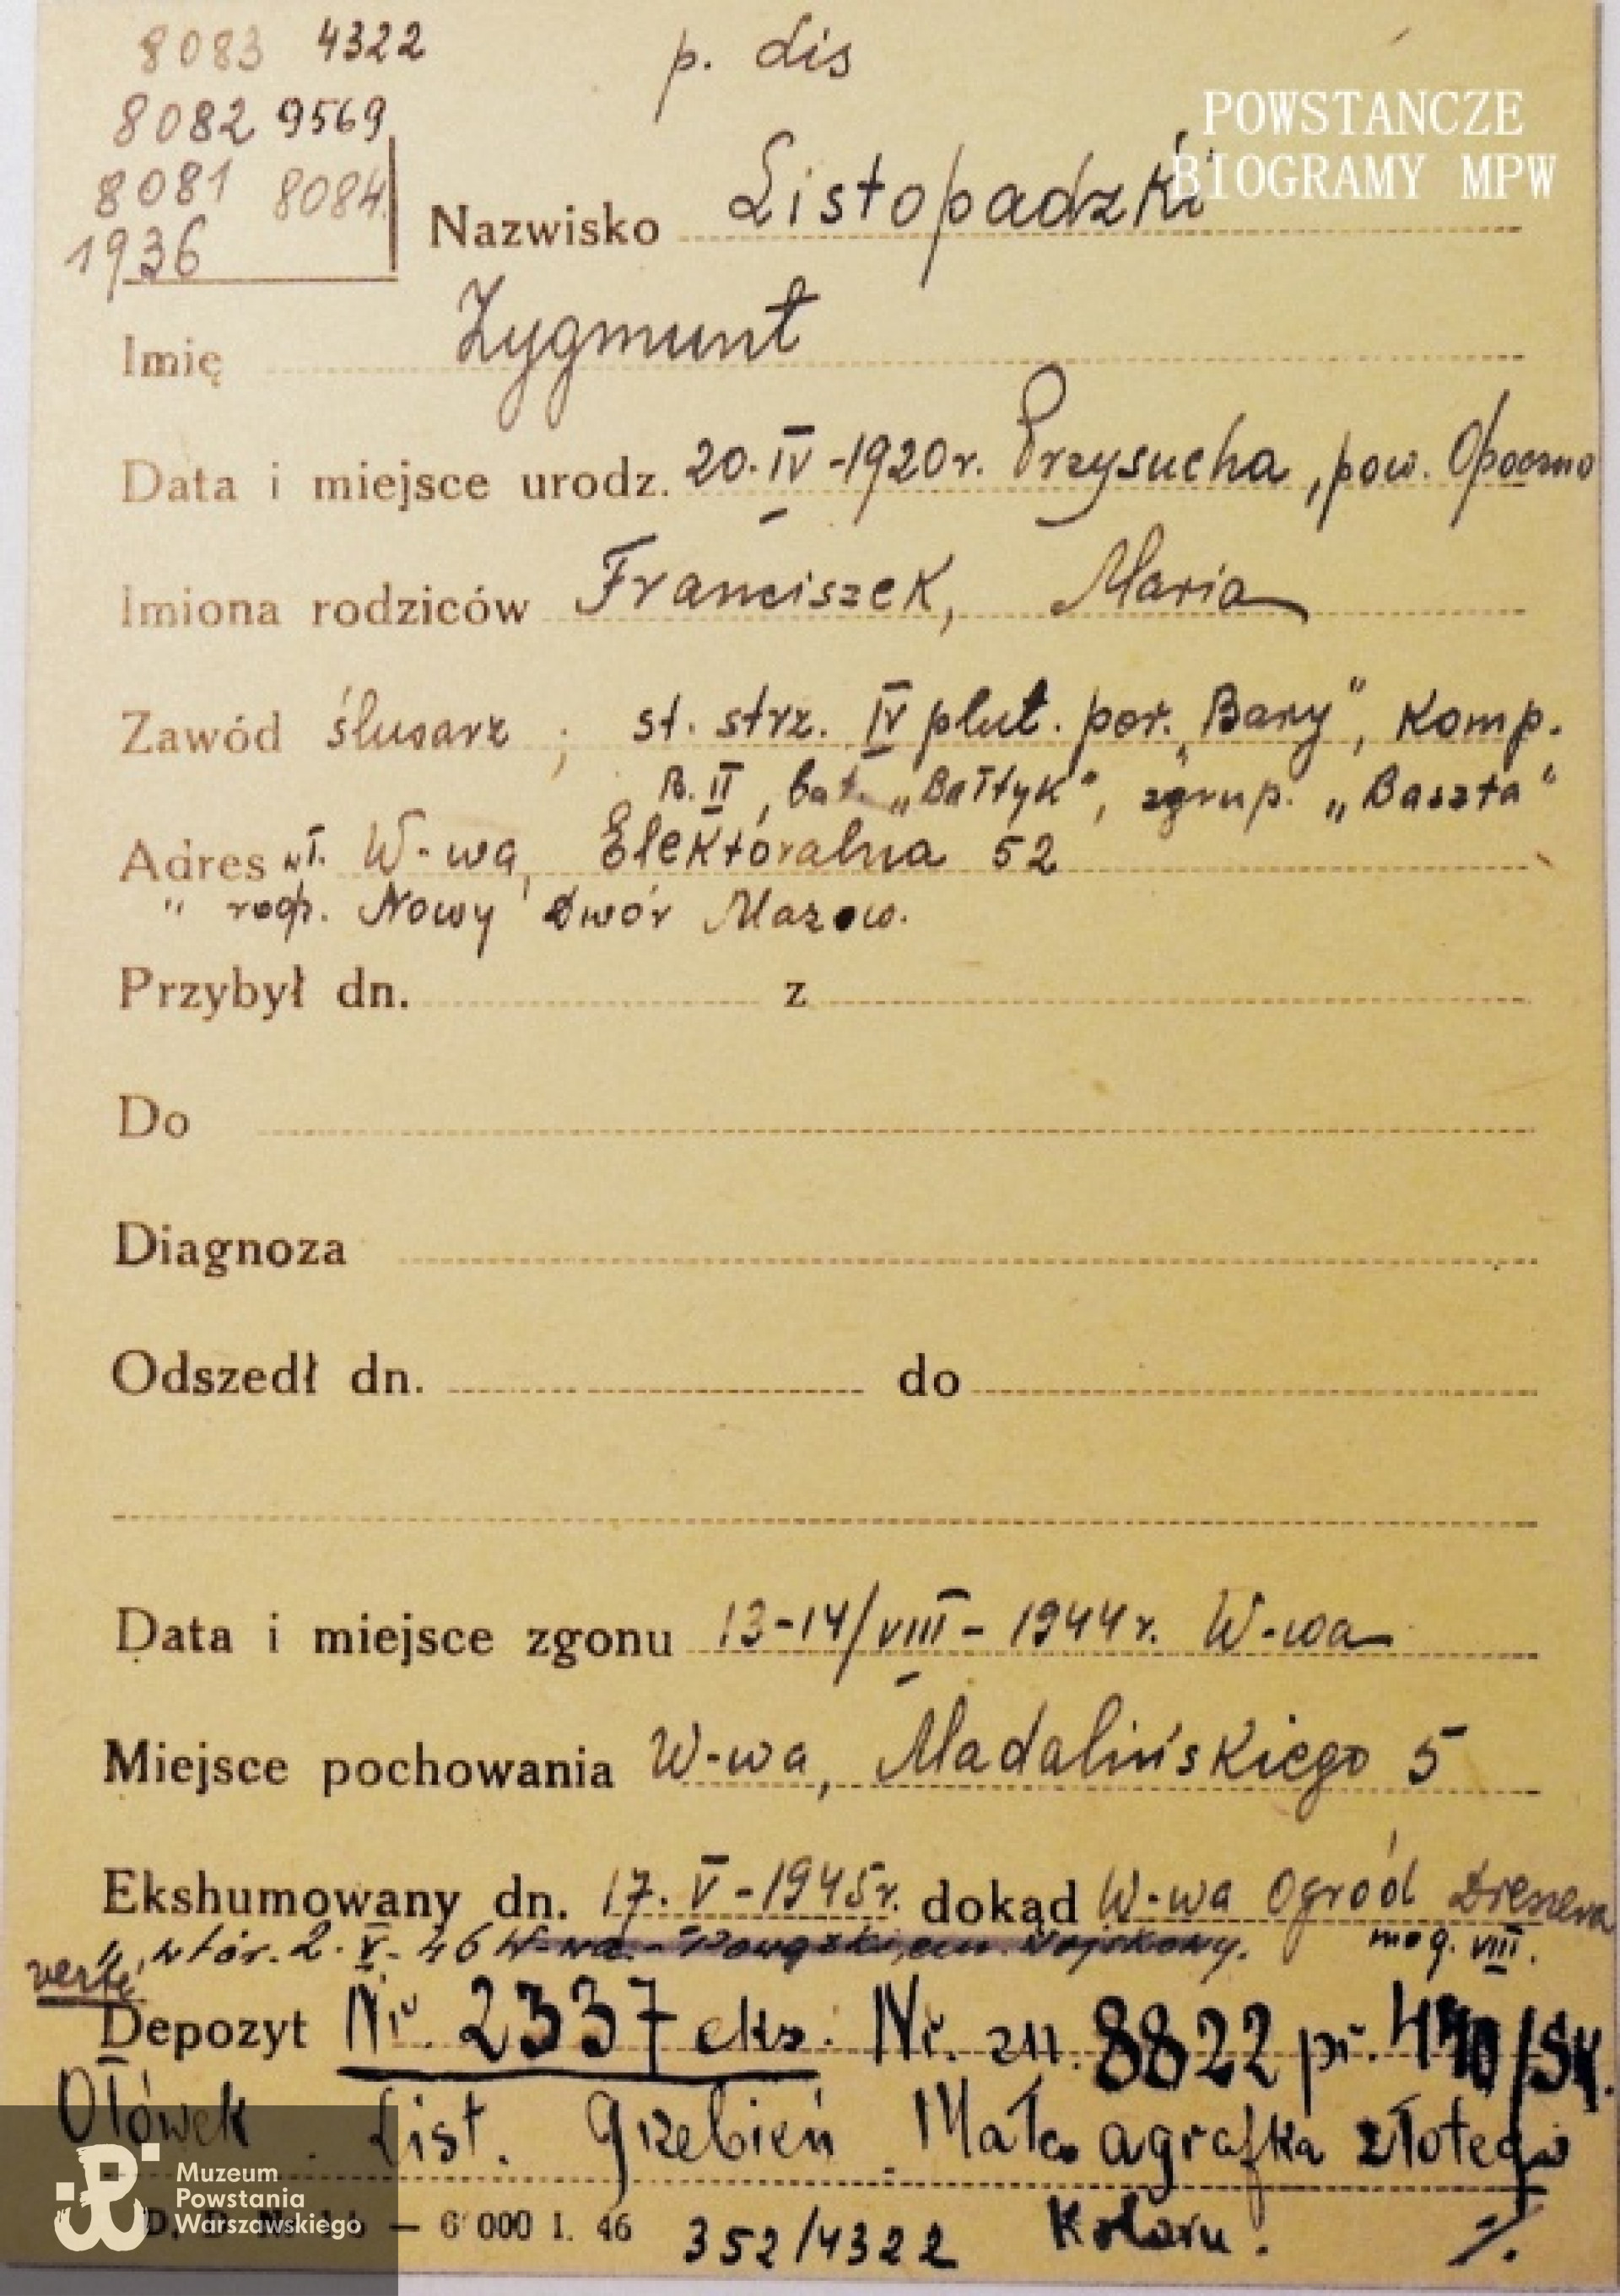 8083 4322
p. Lis
8082 9569
POWSTAŃCZE
BIOGRAMY MPW
8081 8084
1936
Nazwisko Listopadzki
Imię Zygmunt
Data i miejsce urodz. 20.IV-1920r. Przysucha, pow. Opoczno
Imiona rodziców Franciszek, Maria
Zawód ślusarz ; st. strz. IV plut. por. "Bary", Komp.
B. II, bat. „Bałtyk", zgrup. „Baszta"
Adres wł. W-wa, Elektoralna 52
" rodz. Nowy Dwór Mazow.
Przybył dn. z
Do
Diagnoza
Odszedł dn. do
Data i miejsce zgonu 13-14/VIII-1944r. W-wa
Miejsce pochowania W-wa, Madalińskiego 5
Ekshumowany dn. 17.V-1945r. dokąd W-wa Ogród Dreszera
" wtór. 2.V-46 W-wa - Powązki, cm. Wojskowy. mog. VIII.
verte
Depozyt Nr. 2337 eks. Nr. zn. 8822 pr. /Sk.
Ołówek. List. Grzebień. Mała agrafka złotego
Koloru.
— 6000 I. 46 352/4322
Muzeum
Powstania
Warszawskiego